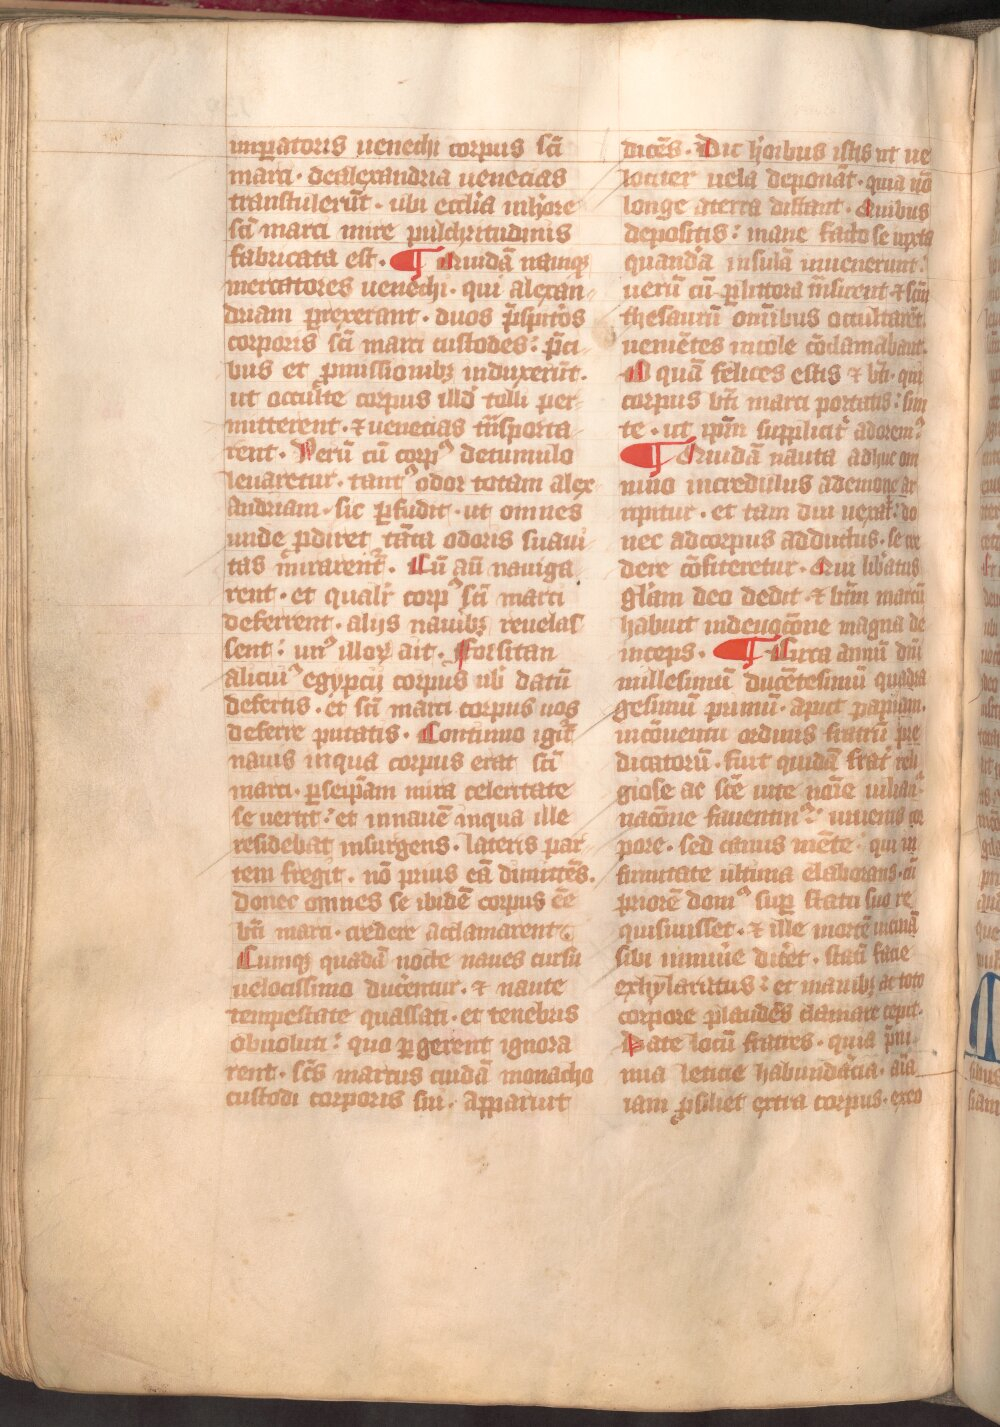 imꝑatoris veneciā corpus sc̄i
marci · dealexandria venecias
transtulerūt · ubi ecclīa inhōre
sc̄i marci mire pulchritudinis
fabricata est · ¶ Quidā namqꝫ
mercatores venechi · qui alexan
driam ꝑrexerant · duos p̄sp̄iros
corporis sc̄i marci custodes : p̄ci
bus et ꝓmissionibꝫ induxerūt ·
ut occulte corpus illd̄ tolli per
mitterent · ⁊ venecias tn̄sporta
rent · Verū cū corpꝰ detumulo
levaretur · tantꝰ odor totam alex
andriam · sic ꝑfudit · ut omnes
unde ꝓdiret tāta odoris suavi
tas mirarent᷑ · Cū aū naviga
rent · et qualit᷑ corpꝰ sc̄i marci
deferrent · alijs navibꝫ revelas
sent : unꝰ illoꝝ ait · Forsitan
alicuiꝰ egypcij corpus vob̄ datū
defertis · et sc̄i marci corpus vos
deferre putatis · Continuo igit᷑
navis inqua corpus erat sc̄i
marci · ꝑseip̄am mira celeritate
se vertit : et innavē inqua ille
residebat insurgens · lateris par
tem fregit · nō prius eā dimittēs ·
donec omnes se ibidē corpus ēe
bt̄i marci · credere acclamarent
Cumqꝫ quadā nocte naves cursu
velocissimo ducentur · ⁊ naute
tempestate quassati · et tenebris
obvoluti : quo ꝑgerent ignora
rent · sc̄s marcus cuidā monacho
custodi corporis sui · apparuit
dicēs · Dic hōibus istis ut ve
lociter vela deponāt · quia nō
longe aterra distant · Quibus
depositis : mane facto se iuxta
quandā insulā invenerunt :
verū cū ꝑ littora t̄nsirent · ⁊ sc̄m
thesaurū omībus occultarēt
veniētes incole cōclamabant ·
O quā felices estis ⁊ bt̄i · qui
corpus bt̄i marci portatis : sini
te · ut ip̄m supplicit᷑ adoremꝰ
¶ Quidā nauta adhuc om
nino incredulus ademone ar
ripitur · et tam diu vexat᷑ : do
nec adcorpus adductus · se cre
dere cōfiteretur · Qui libatus
glīam deo dedit · ⁊ bt̄m marcū
habuit indevocōne magna de
inceps · ¶ Circa annū dn̄i
millesimū ducētesimū quadra
gesimū primū · aput papiam ·
incōventu ordinis fratrū pre
dicatorū · fuit quidā frat᷑ reli
giose ac sc̄e vite noīe iulianꝰ
nacōne faventinꝰ : iuvenis cor
pore · sed canus mēte · qui in
firmitate ultima elaborans · cū
priorē domꝰ suꝑ statu suo re
quisivisset · ⁊ ille mortē vicinā
sibi iminīe dic̄et · statī facie
exhylaratus : et manibꝫ ac toto
corpore plaudēs clamare cepit ·
Date locū fratres · quia p̄ni
mia leticie habundācia · aīa
iam ꝓsiliet extra corpus · exeo